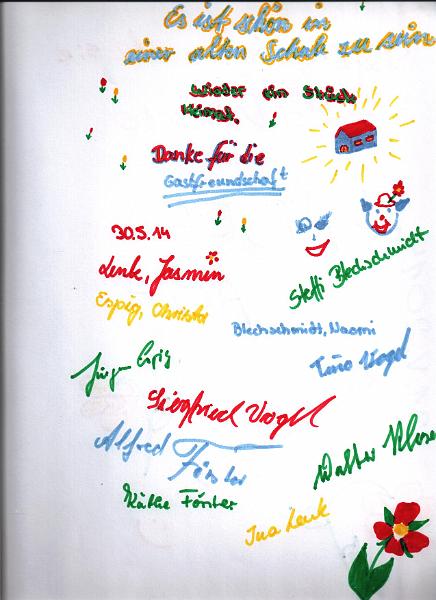 Es ist schön in
einer alten Schule zu sein
wieder ein Stück
Heimat.
Danke für die
Gastfreundschaft
30.5.14
Lenk, Jasmin
Steffi Blechschmidt
Espig, Christa
Blechschmidt, Naomi
Tino Vogel
Jürgen Espig
Siegfried Vogel
Alfred Förster
Walter
Käthe Förster
Ina Lenk